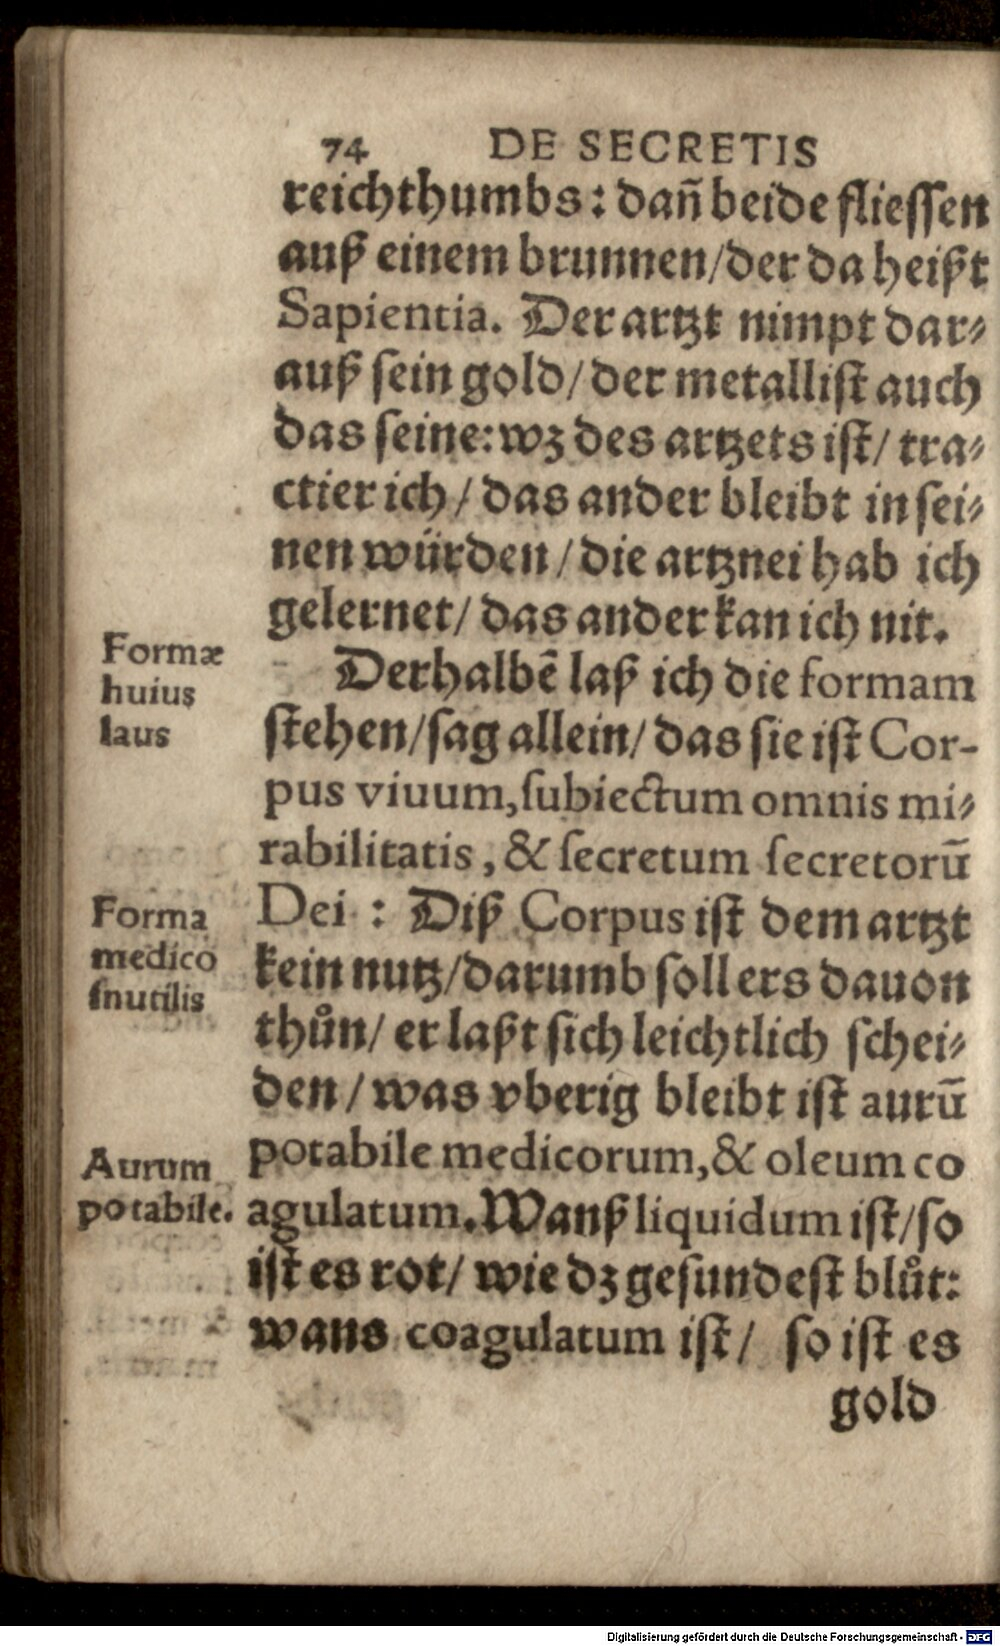 74 DE SECRETIS
reichthumbs: dañ beide fliessen
auß einem brunnen/der da heißt
Sapientia. Der artzt nimpt dar⸗
auß sein gold/ der metallist auch
das seine: wz des artzets ist/ tra⸗
ctier ich/ das ander bleibt in sei⸗
nen würden/ die artznei hab ich
gelernet/ das ander kan ich nit.
Formæ
huius
laus
Derhalbẽ laß ich die formam
stehen/sag allein/ das sie ist Cor-
pus viuum, subiectum omnis mi⸗
rabilitatis, & secretum secretorũ
Forma
medico
inutilis
Dei: Diß Corpus ist dem artzt
kein nutz/darumb soll ers dauon
thůn/ er laßt sich leichtlich schei⸗
den/ was vberig bleibt ist aurũ
Aurum
potabile.
potabile medicorum, & oleum co
agulatum. Wanß liquidum ist/so
ist es rot/ wie dz gesundest blůt:
wans coagulatum ist/ so ist es
gold
Digitalisierung gefördert durch die Deutsche Forschungsgemeinschaft - DFG